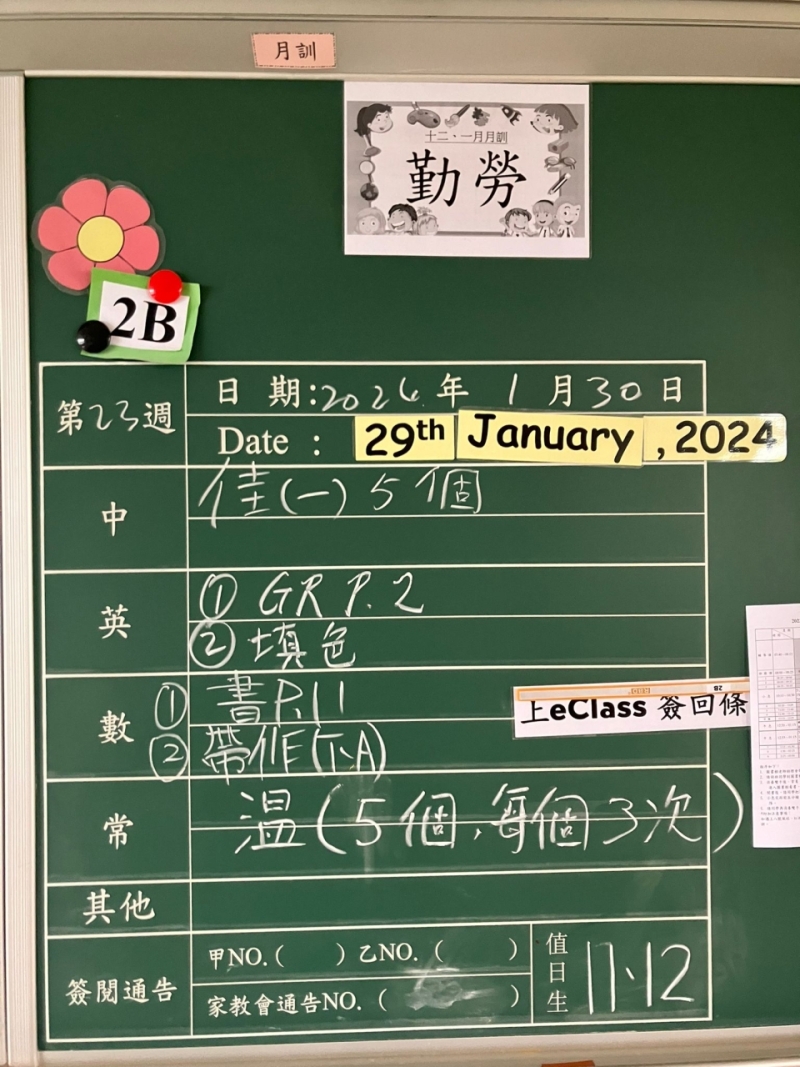 月訓
十二、一月月訓
勤勞
2B
第23週
日 期:2024年 1月30日
Date : 29th January , 2024
中
佳(一) 5個
英
① GR P.2
② 填色
數
① 書P.11
② 帶作(下A)
上eClass 簽回條
常
溫(5個,每個3次)
其他
簽閱通告
甲NO.( ) 乙NO. ( )
家教會通告NO. ( )
值日生
11、12